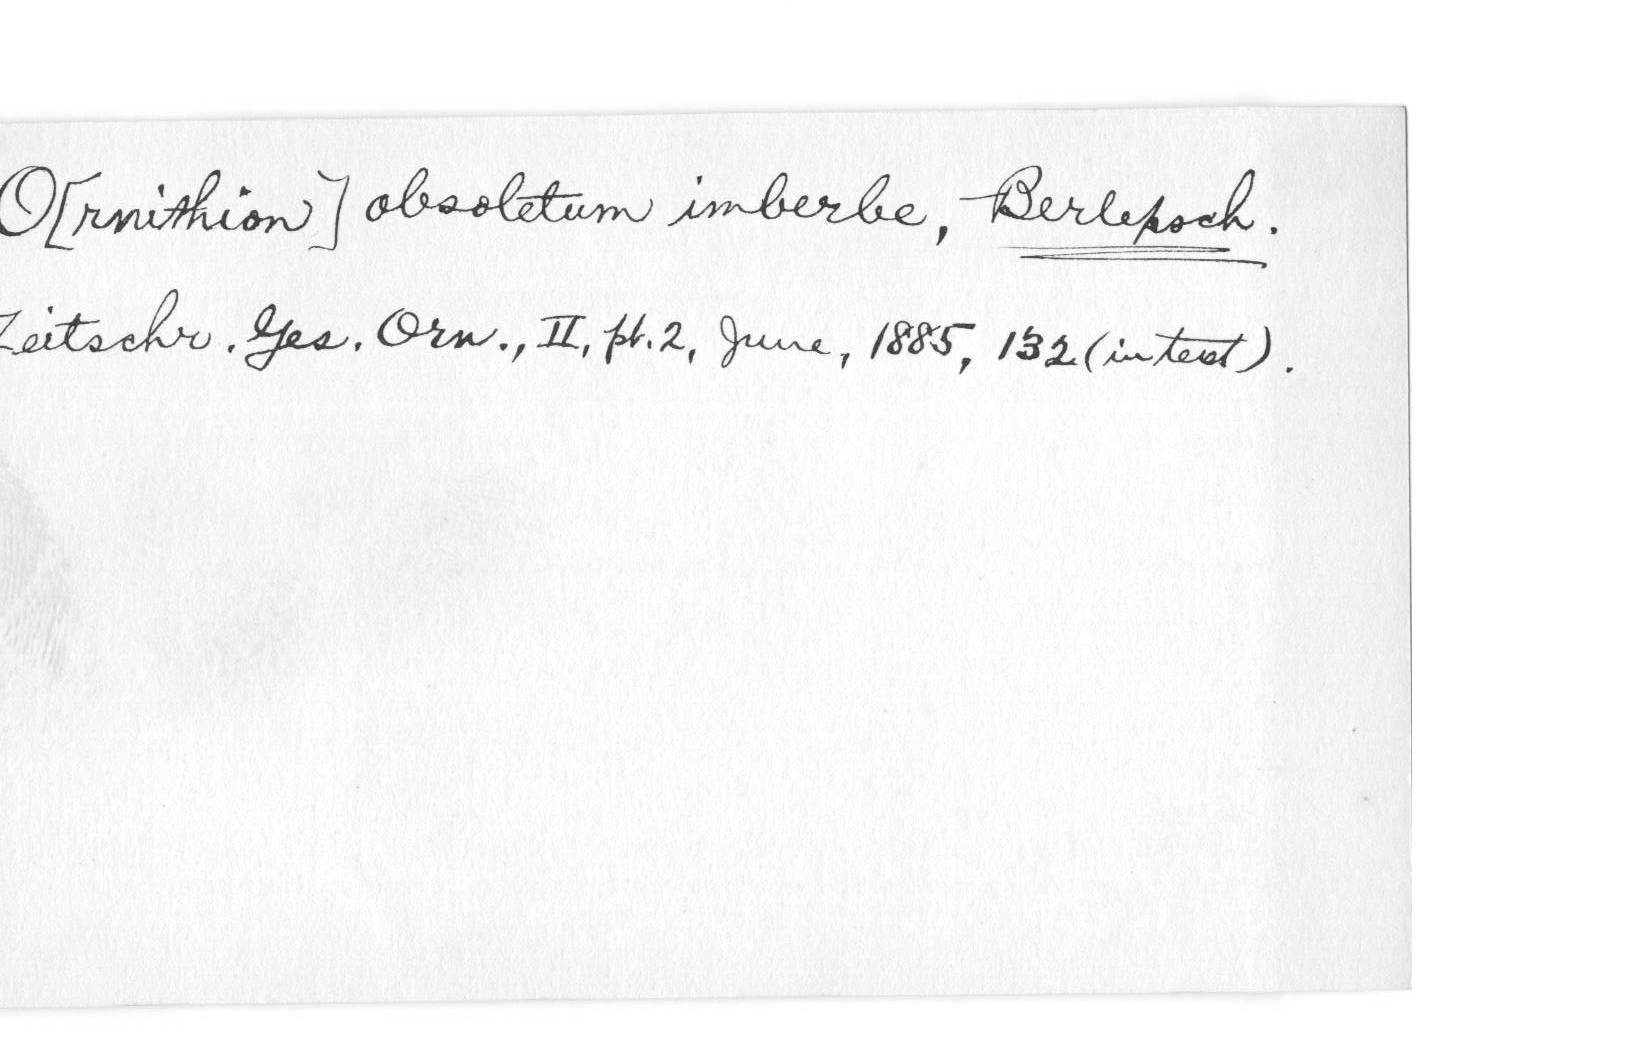 O[rnithion] obsoletum imberbe, Berlepsch.
Zeitschr. Ges. Orn., II, pt. 2, June, 1885, 132 (in text).